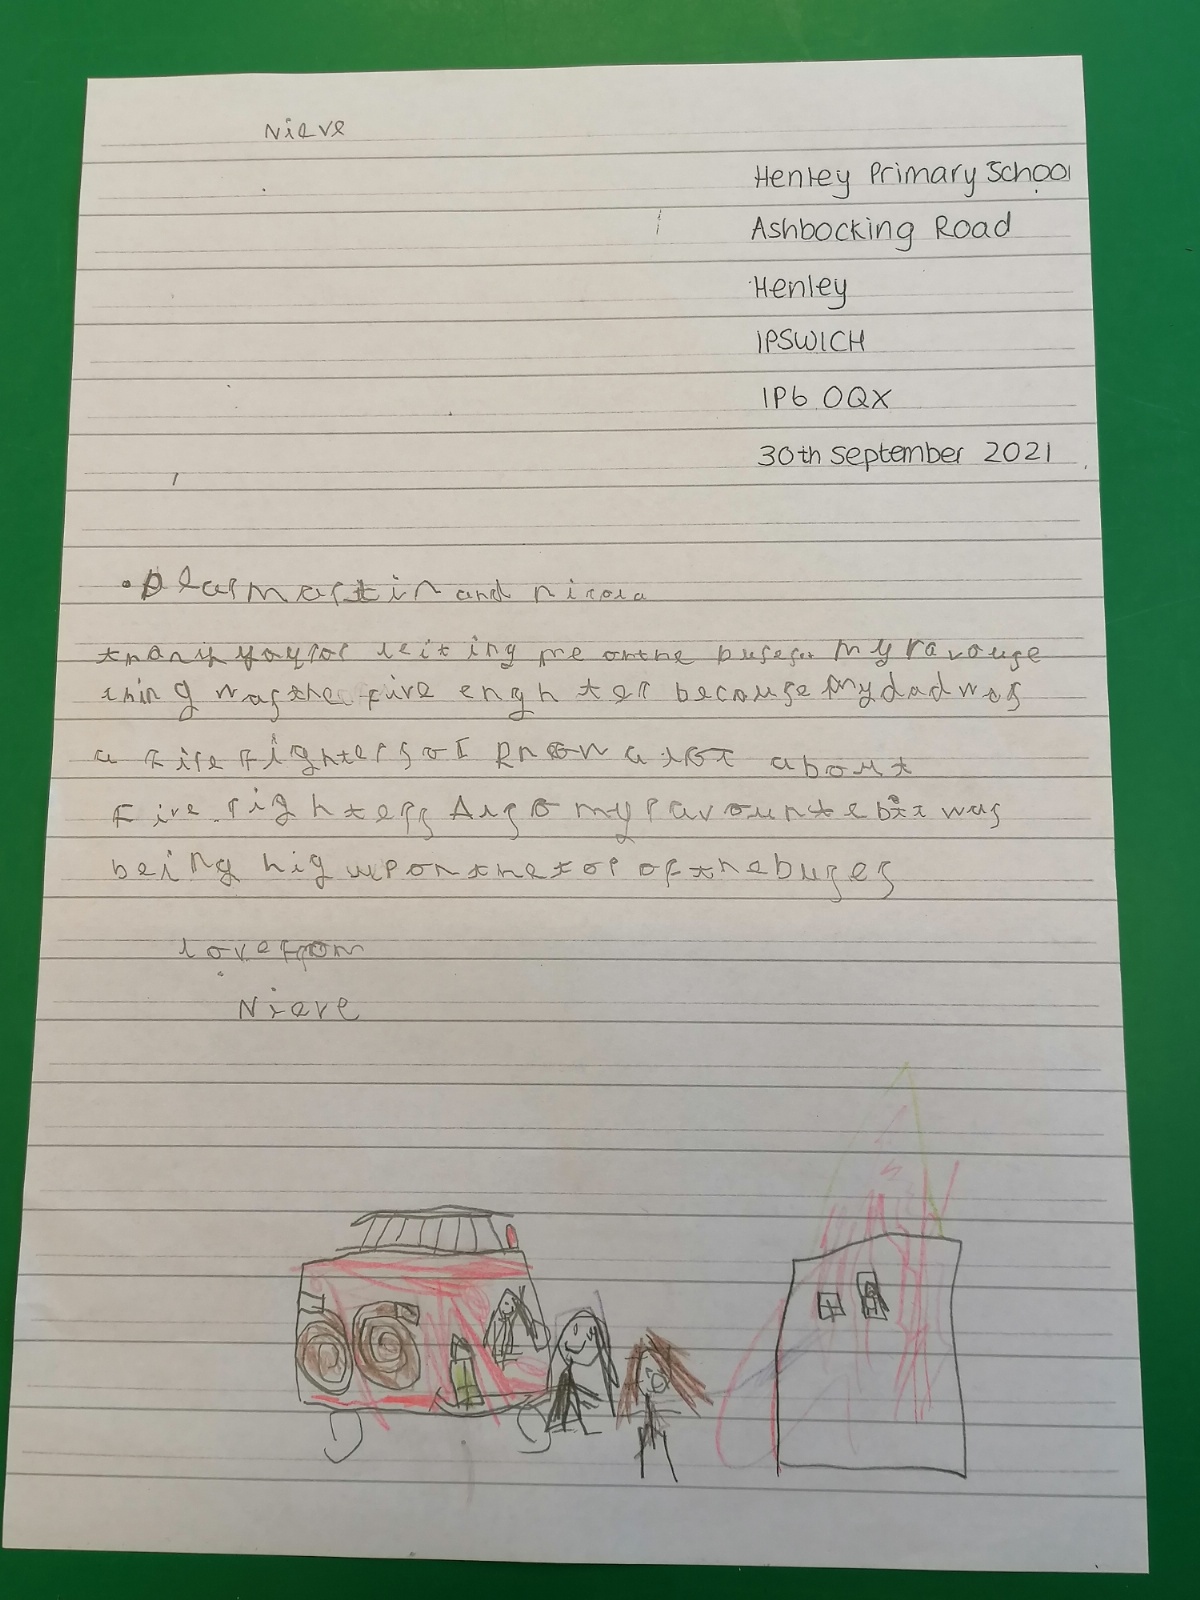 Nieve
Henley Primary School
Ashbocking Road
Henley
IPSWICH
IP6 0QX
30th September 2021
Dear martin and nicola
thank you for letting me on the buses. My favouge
thing was the fire engh ter because my dad was
a fire fighter so I know a lot about
Fire fighters Also my favounte bit was
being hig up on the top of the buses
love from
Nieve